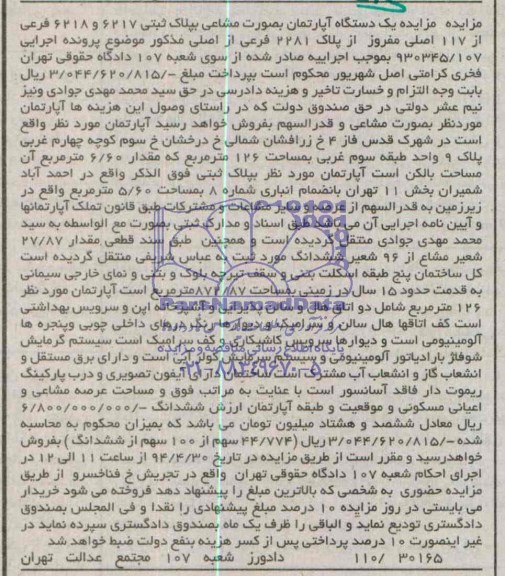 مزایده مزایده یک دستگاه آپارتمان بصورت مشاعی بپلاک ثبتی ۶۲۱۷ و ۶۲۱۸ فرعی
از ۱۱۷ اصلی مفروز از پلاک ۲۲۸۱ فرعی از اصلی مذکور موضوع پرونده اجرایی
۹۳۰۳۴۵/۱۰۷ بموجب اجراییه صادر شده از سوی شعبه ۱۰۷ دادگاه حقوقی تهران
فخری کرامتی اصل شهرپور محکوم است بپرداخت مبلغ -/۳/۰۴۴/۶۲۰/۸۱۵ ریال
بابت وجه التزام و خسارت تاخیر و هزینه دادرسی در حق سید محمد مهدی جوادی ونیز
نیم عشر دولتی در حق صندوق دولت که در راستای وصول این هزینه ها آپارتمان
موردنظر بصورت مشاعی و قدرالسهم بفروش خواهد رسید آپارتمان مورد نظر واقع
است در شهرک قدس فاز ۴ خ زرافشان شمالی خ درخشان خ سوم کوچه چهارم غربی
پلاک ۹ واحد طبقه سوم غربی بمساحت ۱۲۶ مترمربع که مقدار ۶/۶۰ مترمربع آن
مساحت بالکن است آپارتمان مورد نظر بپلاک ثبتی فوق الذکر واقع در احمد آباد
شمیران بخش ۱۱ تهران بانضمام انباری شماره ۸ بمساحت ۵/۶۰ مترمربع واقع در
زیرزمین به قدرالسهم از عرصه و سایر مشاعات و مشترکات طبق قانون تملک آپارتمانها
و آیین نامه اجرایی آن می باشد طبق اسناد و مدارک ثبتی بصورت مع الواسطه به سید
محمد مهدی جوادی منتقل گردیده است و همچنین طبق سند قطعی مقدار ۲۷/۸۷
شعیر مشاع از ۹۶ شعیر ششدانگ مورد ثبت به عباس شریفی منتقل گردیده است
کل ساختمان پنج طبقه اسکلت بتنی و سقف تیرچه بلوک و بتنی و نمای خارجی سیمانی
به قدمت حدود ۱۵ سال در زمینی بمساحت ۸۷۲/۸۷ مترمربع است آپارتمان مورد نظر
۱۲۶ مترمربع شامل دو اتاق هال و سالن پذیرایی و آشپزخانه اپن و سرویس بهداشتی
است کف اتاقها هال سالن و سرامیک و دیوارها رنگ دربهای داخلی چوبی وپنجره ها
آلومینیومی است و دیوارها سرویس کاشیکاری و کف سرامیک است سیستم گرمایش
شوفاژ بارادیاتور آلومینیومی و سیستم سرمایش کولر آبی است و دارای برق مستقل و
انشعاب گاز و انشعاب آب مشترک است ساختمان دارای آیفون تصویری و درب پارکینگ
ریموت دار فاقد آسانسور است با عنایت به مراتب فوق و مساحت عرصه مشاعی و
اعیانی مسکونی و موقعیت و طبقه آپارتمان ارزش ششدانگ -/۶/۸۰۰/۰۰۰/۰۰۰
ریال معادل ششصد و هشتاد میلیون تومان می باشد که بمیزان محکوم به محاسبه
شده -/۳/۰۴۴/۶۲۰/۸۱۵ ریال (۴۴/۷۷۴ سهم از ۱۰۰ سهم از ششدانگ) بفروش
خواهدرسید و مقرر است از طریق مزایده در تاریخ ۹۴/۴/۳۰ از ساعت ۱۱ الی ۱۲ در
اجرای احکام شعبه ۱۰۷ دادگاه حقوقی تهران واقع در تجریش خ فناخسرو از طریق
مزایده حضوری به شخصی که بالاترین مبلغ را پیشنهاد دهد فروخته می شود خریدار
می بایستی در روز مزایده ۱۰ درصد مبلغ پیشنهادی را نقدا و فی المجلس بصندوق
دادگستری تودیع نماید و الباقی را ظرف یک ماه بصندوق دادگستری سپرده نماید در
غیر اینصورت ۱۰ درصد پرداختی پس از کسر هزینه بنفع دولت ضبط خواهد شد
۳۰۱۶۵ /۱۱۰ دادورز شعبه ۱۰۷ مجتمع عدالت تهران
ParsNamadData
پایگاه اطلاع رسانی مناقصه و مزایده
۰۲۱-۸۸۳۴۹۶۷۰-۵